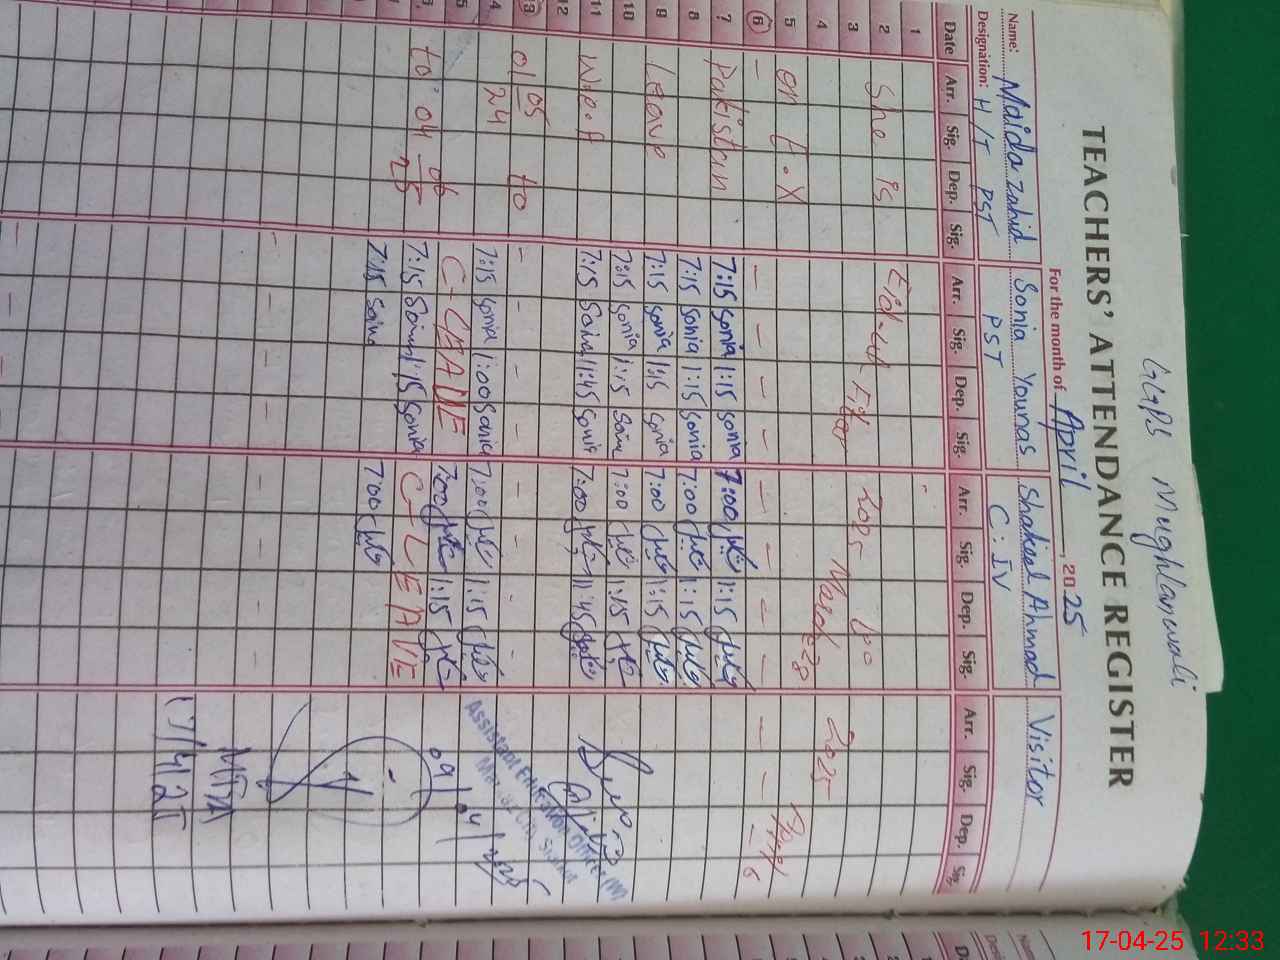 GGPS Mughlanwali
TEACHERS' ATTENDANCE REGISTER
For the month of April, 2025
Name: Maida Zahid Sonia Younas Shakeel Ahmad Visitor
Designation: H/T PST PST C:IV
Date Arr. Sig. Dep. Sig. Arr. Sig. Dep. Sig. Arr. Sig. Dep. Sig. Arr. Sig. Dep. Sig.
1
2 She is Eid-ul Fiter 2025
3 March 28 2025
4
5 on E.X
6 - - - - - - - - - - -
7 Pakistan 7:15 Sonia 1:15 Sonia 7:00 1:15
8 7:15 Sonia 1:15 Sonia 7:00 1:15
9 Leave 7:15 Sonia 1:15 Sonia 7:00 1:15
10 7:15 Sonia 1:15 7:00 1:15
11 W.e.f 7:15 11:45 Sonia 7:00 11:45
12
13 01 05 24 to - - - - - - - -
14 7:15 Sonia 1:00 Sonia 7:00 1:15
15 C-LEAVE 7:00 1:15
to 04 06 25 7:15 1:15 Sonia C-LEAVE
7:15 7:00
09/04/2025
17/4/25
17-04-25 12:33